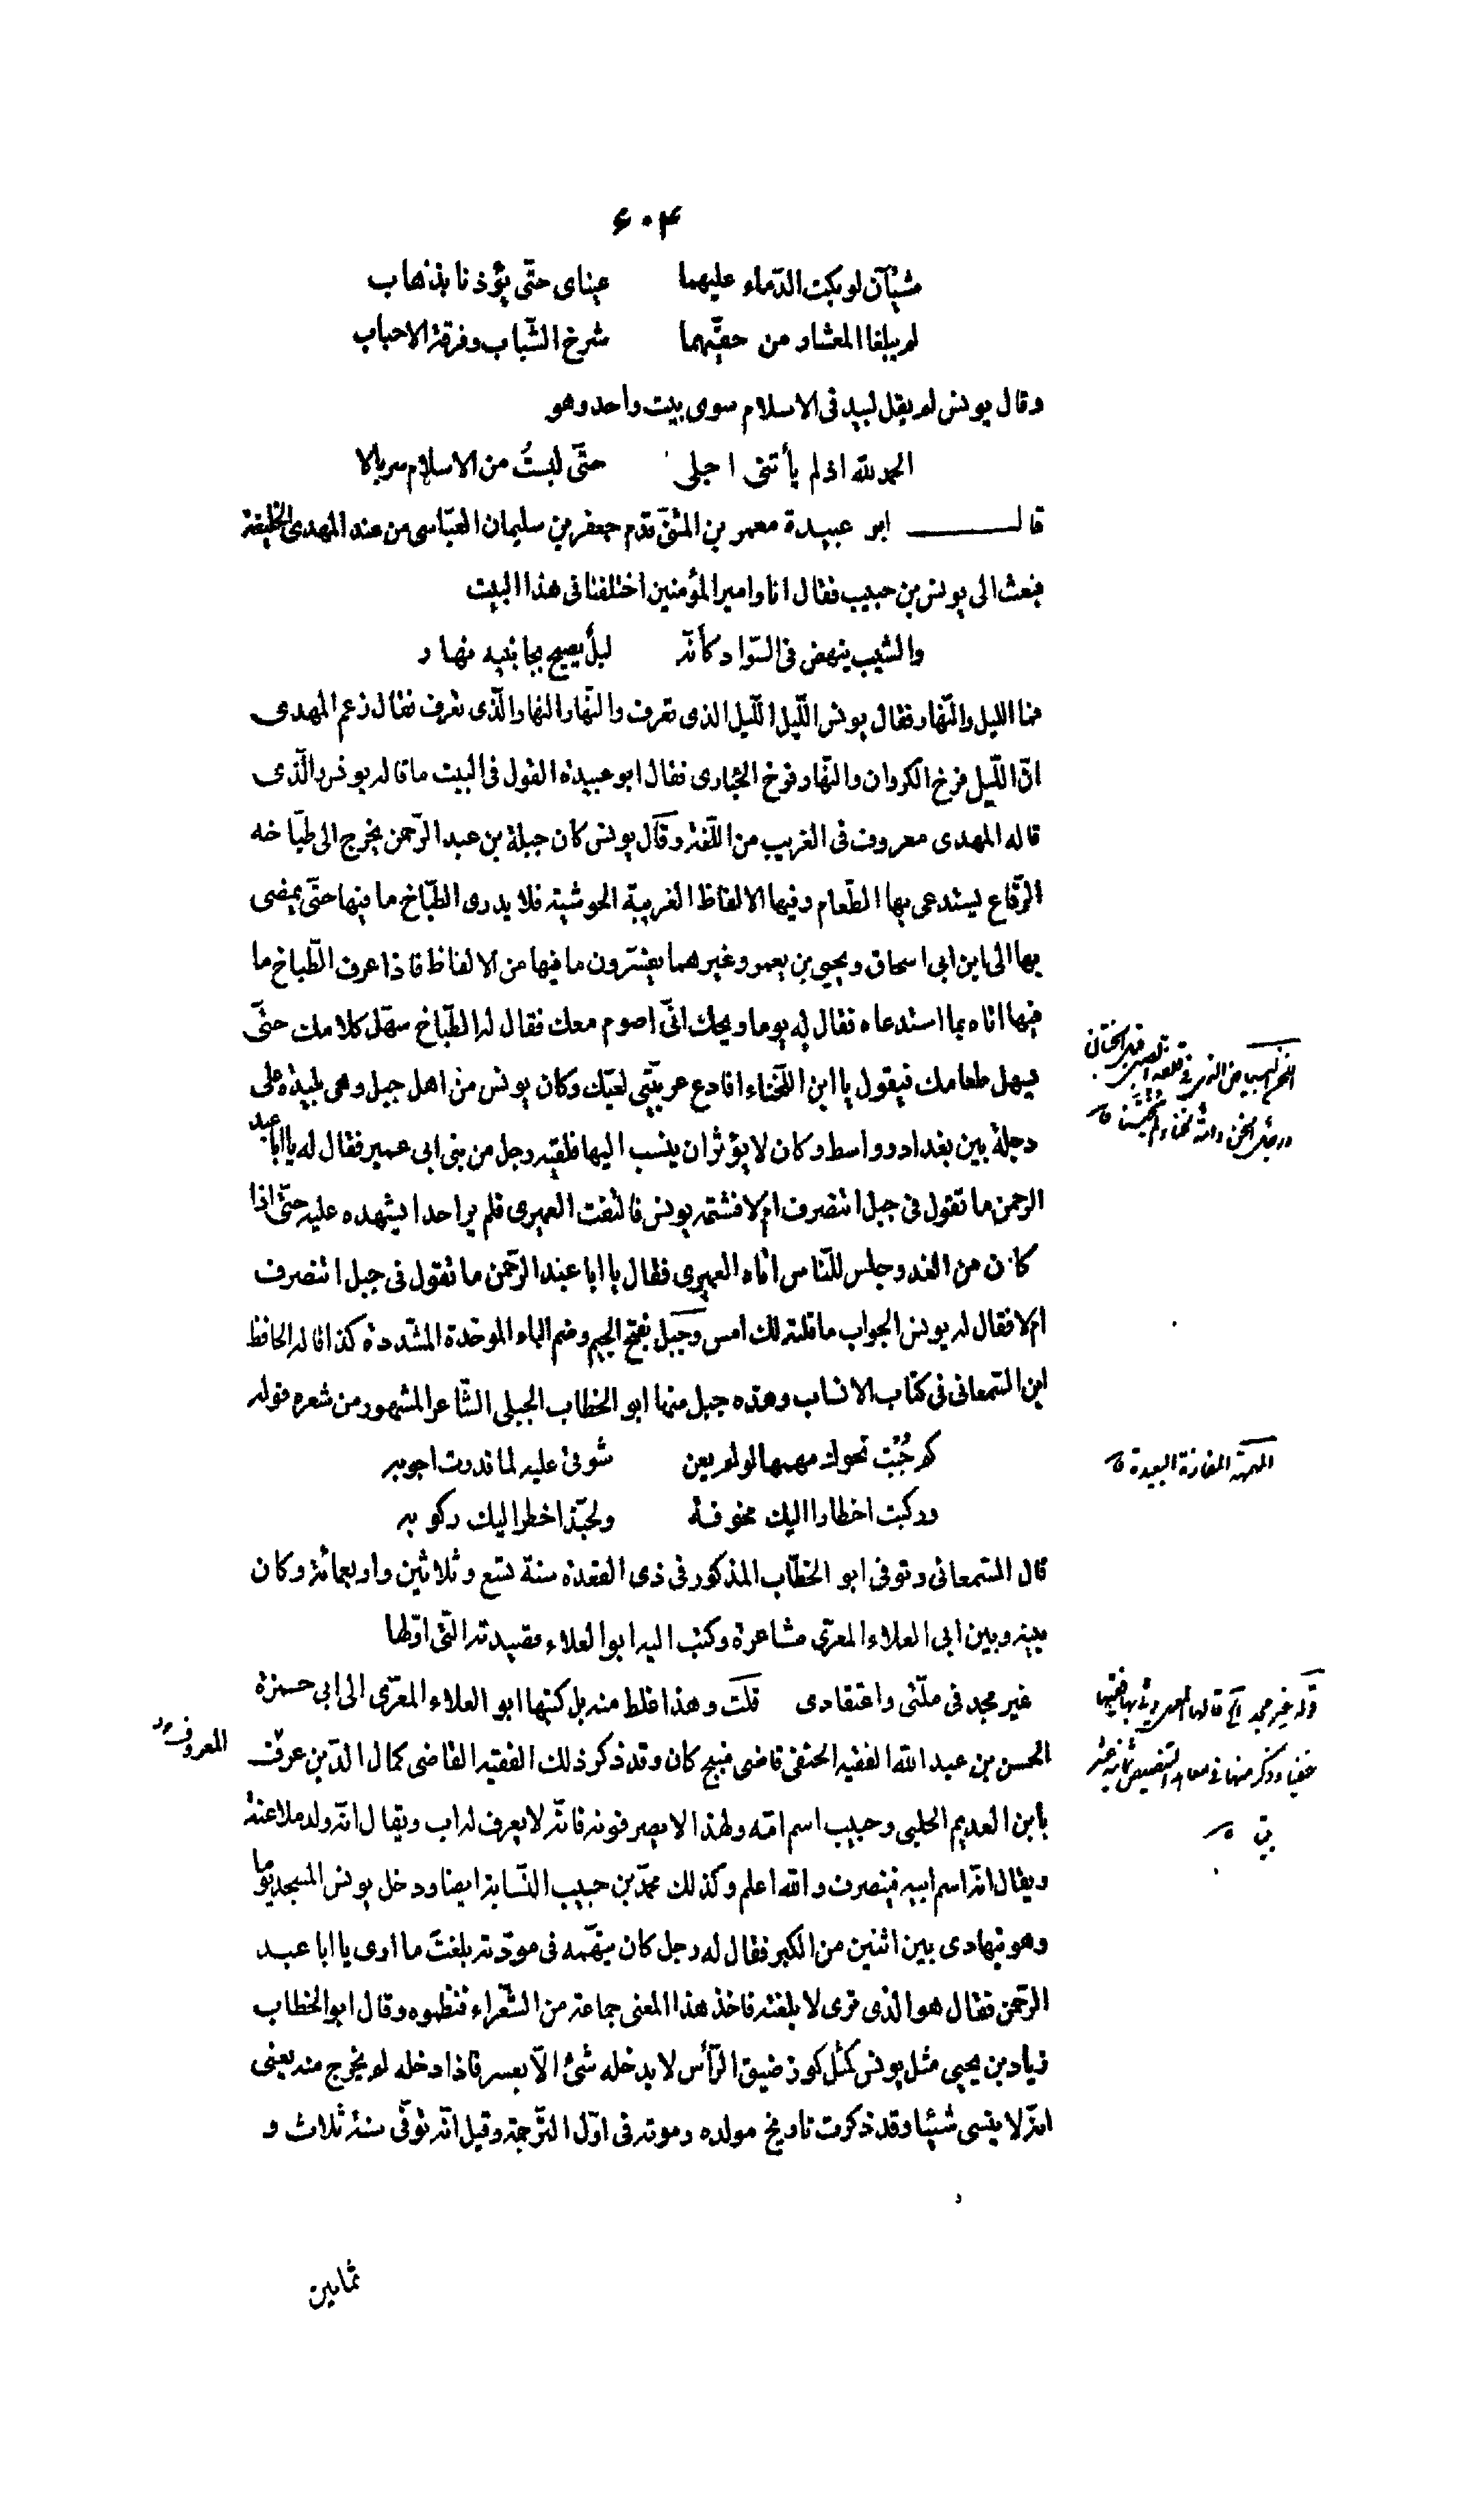 ۶۰۴
شيئان لو بكت الدّماء عليهما عيناى حتّى يؤذنا بذهاب
لم يبلغا المعشار من حقّيهما شرخ الشّباب وفرقة الاحباب
وقال يونس لم يقل لبيد فى الاسلام سوى بيت واحد وهو
الحمد لله اذ لم يأتنى اجلى حتّى لبستُ من الاسلام سربالا
قال ابو عبيدة معمر بن المثنّى قدم جعفر بن سليمان العبّاسى من عند المهدى الخليفة
فبعث الى يونس بن حبيب فقال انا وامير المؤمنين اختلفنا فى هذا البيت
والشيب ينهض فى السّواد كأنّه ليل يصيح بجانبيه نهار
فما الليل والنّهار فقال يونس اللّيل اللّيل الذى تعرف والنّهار النهار الّذى تعرف فقال زعم المهدى
انّ اللّيل فرخ الكروان والنّهار فرخ الحبارى فقال ابو عبيدة القول فى البيت ما قاله يونس والّذى
قاله المهدى معروف فى الغريب من اللّغة وقال يونس كان جبلة بن عبد الرّحمن يخرج الى طبّاخه
الرّقاع يستدعى بها الطّعام وفيها الالفاظ الغريبة الحوشية فلا يدرى الطّبّاخ ما فيها حتّى يمضى
بها الى ابن ابى اسحاق ويحيى بن يعمر وغيرهما يفسّرون ما فيها من الالفاظ فاذا عرف الطّباخ ما
فيها اتاه بما استدعاه فقال له يوما ويحك انّى اصوم معك فقال له الطّبّاخ سهّل كلامك حتّى
يسهل طعامك فيقول يا ابن اللّخناء افادع عربيّتى لعيّك وكان يونس من اهل جبل وهى بليدة على
دجلة بين بغداد وواسط وكان لا يؤثر ان ينسب اليها فلقيه رجل من بنى ابى عمير فقال له يا ابا عبد
الرحمن ما تقول فى جبل اتنصرف ام لا فشتمه يونس فالتفت العميرى فلم ير احدا يشهده عليه حتّى اذا
كان من الغد وجلس للنّاس اتاه العميرى فقال يا ابا عبد الرّحمن ما تقول فى جبل اتنصرف
ام لا فقال له يونس الجواب ما قلته لك امس وجبل بفتح الجيم وضم الباء الموحّدة المشدّدة كذا قاله الحافظ
ابن السّمعانى فى كتاب الانساب وهذه جبل منها ابو الخطاب الجبلى الشّاعر المشهور من شعره قوله
كم جُبْت نحوك مهمها لو لم يعن شوقى عليه لما قدرت اجوبه
وركبت اخطارا اليك مخوفة ولحبّذا خطرا اليك ركوبه
المهمه المفازة البعيدة
قال السّمعانى وتوفى ابو الخطّاب المذكور فى ذى القعدة سنة تسع وثلاثين واربعمائة وكان
بينه وبين ابى العلاء المعرّى مشاعرة وكتب اليه ابو العلاء قصيدته الّتى اوّلها
غير مجد فى ملّتى واعتقادى قلت وهذا غلط منه بل كتبها ابو العلاء المعرّى الى ابى حمزة
الحسن بن عبد الله الفقيه الحنفى قاضى منبج كان وقد ذكر ذلك الفقيه القاضى كمال الدّين عرف
المعروف
بابن العديم الحلبى وحبيب اسم امّه ولهذا لا يصرفونه فانّه لا يعرف له اب ويقال انّه ولد ملاعنة
ويقال انّه اسم ابيه فينصرف والله اعلم وكذلك محمّد بن حبيب النّسابة ايضا ودخل يونس المسجد يوما
وهو يتهادى بين اثنين من الكبر فقال له رجل كان يتهمه فى مودّته بلغتَ ما ارى يا ابا عبد
الرّحمن فقال هو الذى ترى لا بلغته فاخذ هذا المعنى جماعة من الشّعراء فنظموه وقال ابو الخطاب
زياد بن يحيى مثل يونس كمثل كوز ضيق الرّأس لا يدخله شئ الّا بعسر فاذا دخله لم يخرج منه يعنى
انّه لا ينسى شيئا وقد ذكرت تاريخ مولده وموته فى اوّل التّرجمة وقيل انّه توفّى سنة ثلاث و
ثمانين